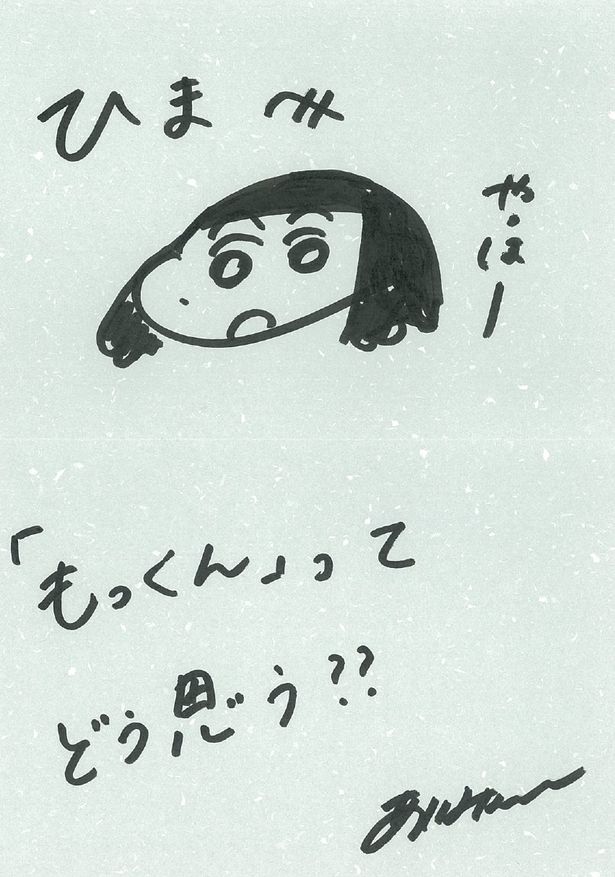 ひま
やっほー
「もっくん」って
どう思う??